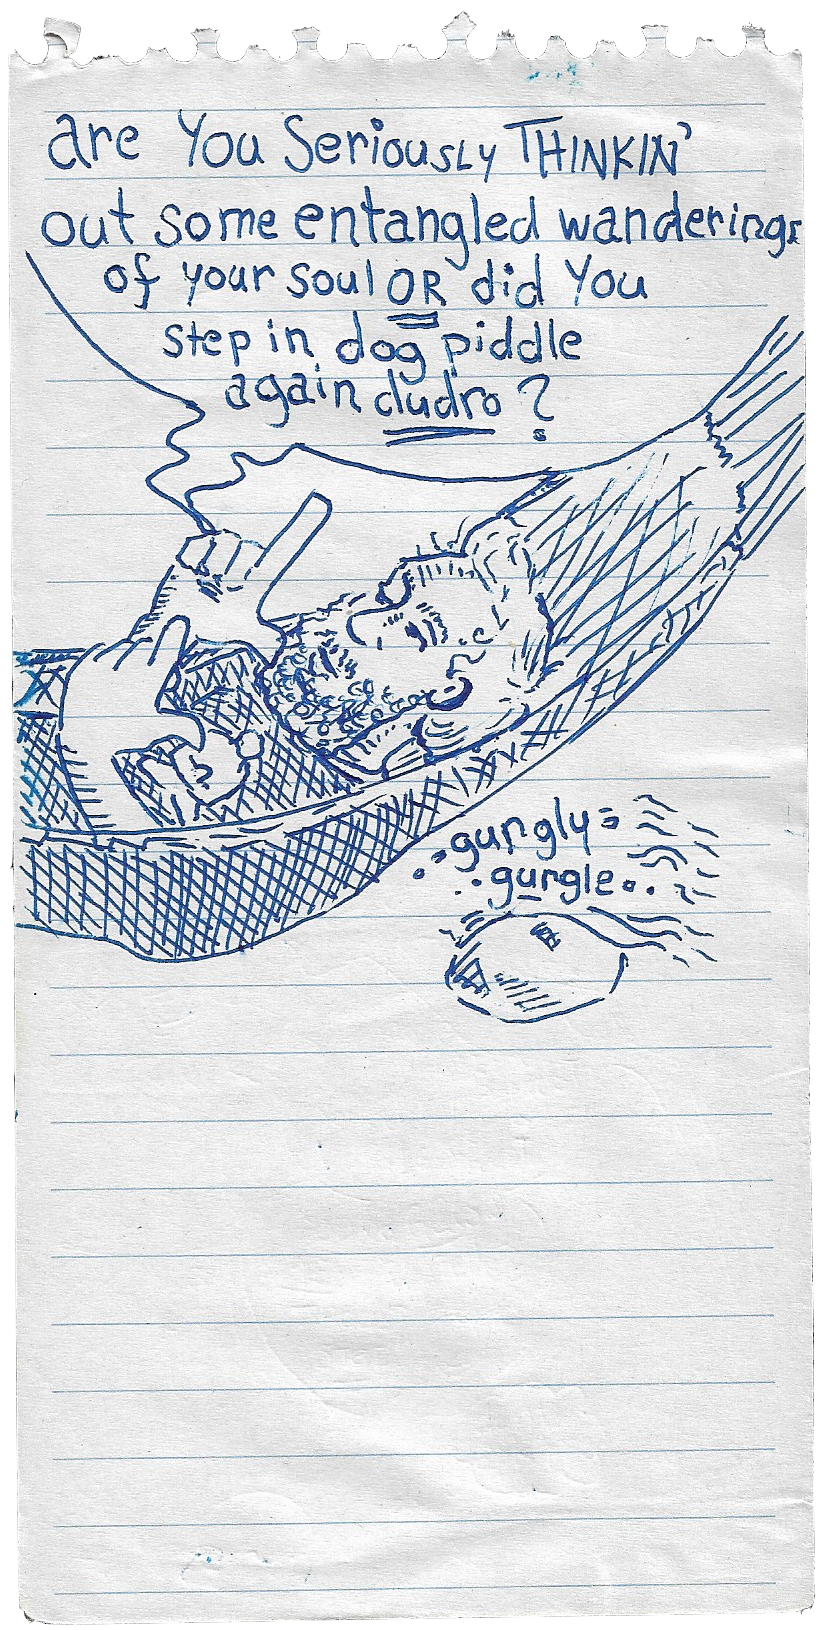 are You SERIOUSLY THINKIN'
out some entangled wanderings
of your soul OR did You
step in dog piddle
again dudro ?
gurgly
gurgle..